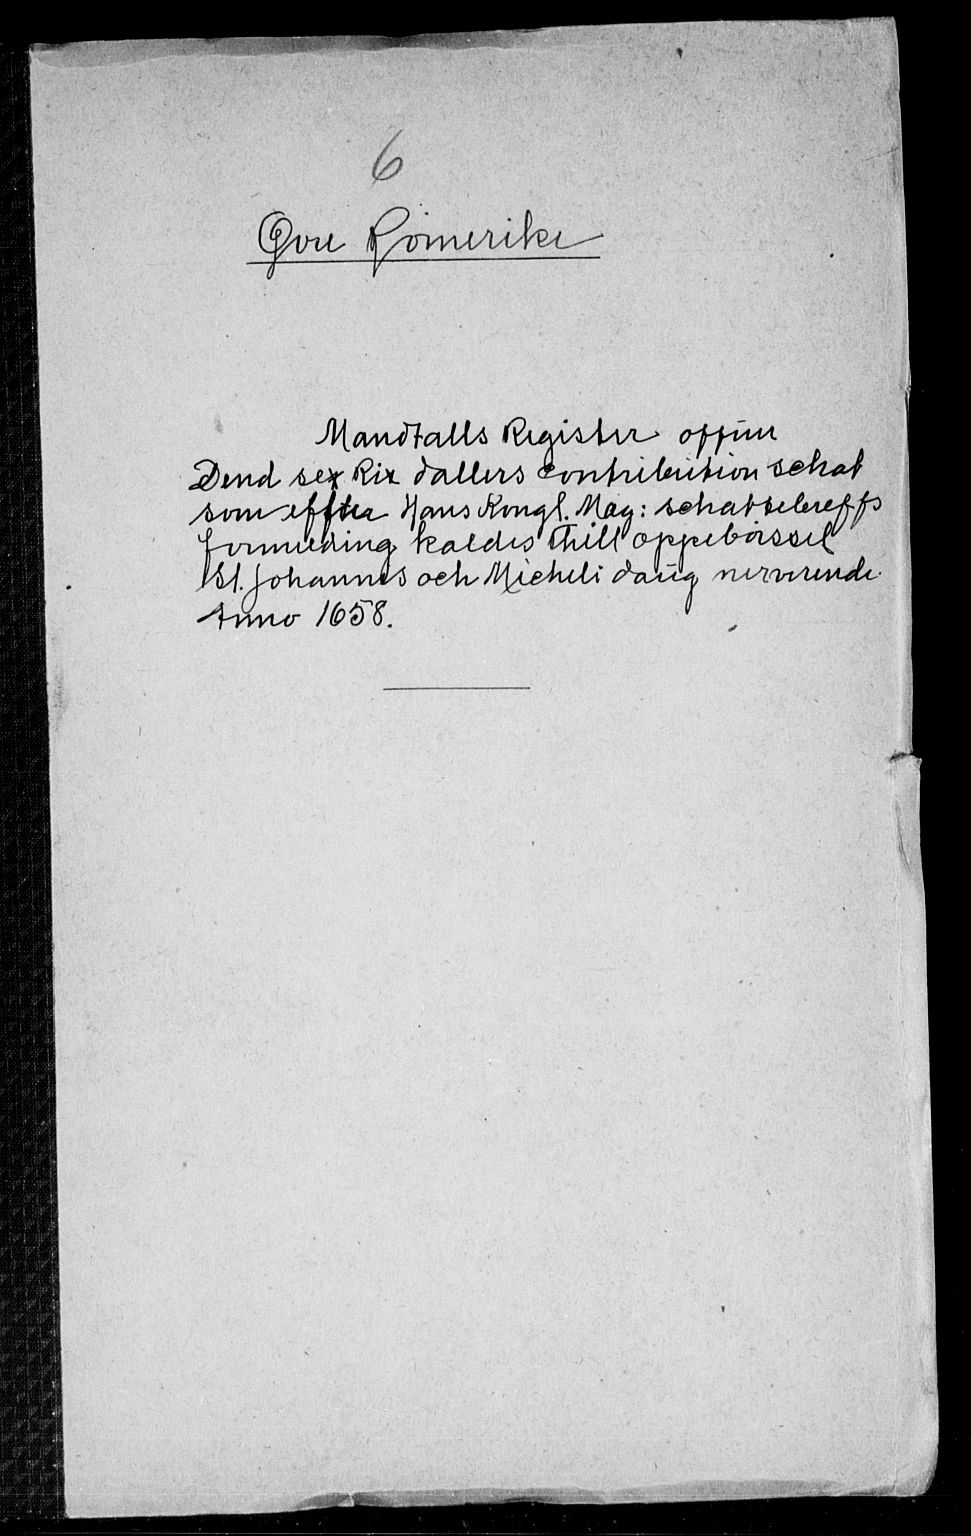 6
Øvre Romerike
Mandtalls Register offuer
Dend sex Rix dallers contribution schat
som efftter Hans Kongl. May: schattebreffs
formelding kaldes thill oppebörssel
St. Johannes och Micheli daüg nerverende
Anno 1658.